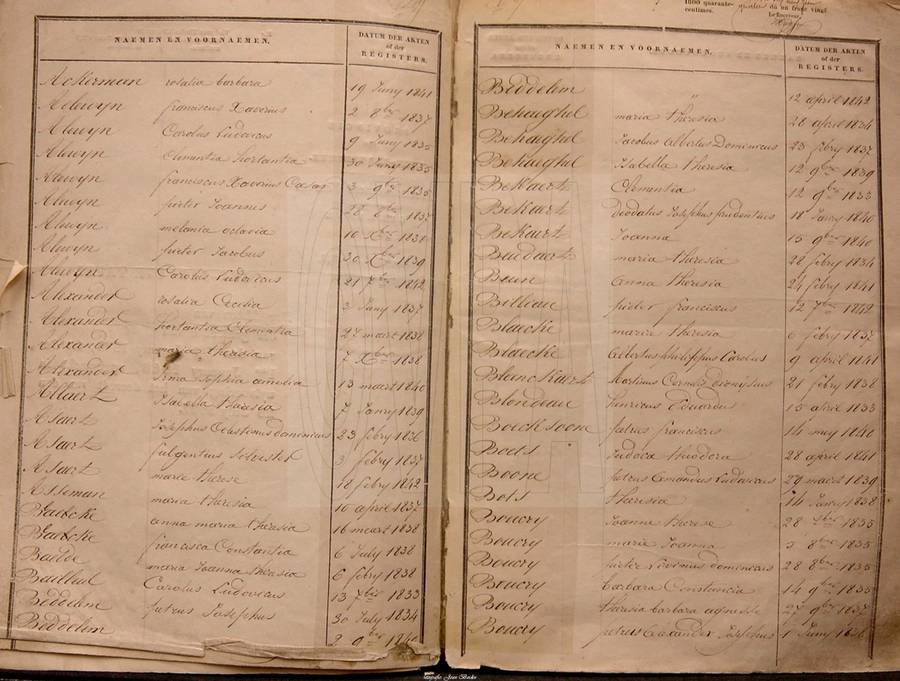 NAEMEN EN VOORNAEMEN.
DATUM DER AKTEN
of der
REGISTERS.
Ackerman rosalia barbara 19 Juny 1841
Aelwyn franciscus Xaverius 2 8bre 1837
Alwyn Carolus Ludovicus 9 Juny 1835
Alwyn Clementia hortantia 30 Juny 1835
Alwyn franciscus Xaverius Cesar 3 9bre 1835
Alwyn pieter Joannes 28 8bre 1837
Alwyn melania octavia 10 Xbre 1838
Alwyn pieter Jacobus 30 Xbre 1839
Alwyn Carolus Ludovicus 21 7bre 1842
Alexander rosalia Cecilia 3 Juny 1837
Alexander hortantia Clementia 27 maart 1838
Alexander maria theresia 7 Xbre 1838
Alexander Irma Sophia amelia 13 maart 1840
Allaert Isabella theresia 7 Janry 1839
Asaert Josephus Celestinus domenicus 23 febry 1836
Asaert fulgentius Silvester 3 febry 1837
Asaert marie therese 18 febry 1842
Asseman maria theresia 10 april 1837
Baecke anna maria theresia 16 maert 1838
Baecke francisca Constantia 6 July 1838
Baelde maria Joanna theresia 6 febry 1838
Bailleul Carolus Ludovicus 13 7bre 1833
Beddelem petrus Josephus 30 July 1834
Beddelem 8 9bre 1840
1800 quarante-
centimes.
NAEMEN EN VOORNAEMEN.
DATUM DER AKTEN
of der
REGISTERS.
Beddelem " 12 april 1842
Behaeghel maria theresia 20 april 1834
Behaeghel Jacobus albertus Domenicus 23 febry 1837
Behaeghel Isabella theresia 12 9bre 1839
Bekaert Clementia 12 9bre 1833
Bekaert Deodatus Josephus prudentius 18 Janry 1840
Bekaert Joanna 15 9bre 1840
Buddaert maria theresia 28 febry 1834
Beun anna theresia 24 febry 1841
Billeau pieter franciscus 12 7bre 1842
Blaecke marie theresia 6 febry 1837
Blaecke albertus philippus Carolus 9 april 1841
Blanckaert Martinus Cornelis dionysius 21 febry 1838
Blondeau henricus Eduardus 15 april 1833
Boecksoone petrus franciscus 14 mey 1840
Boels Ludoca theodora 28 april 1841
Boone petrus amandus Ludovicus 29 maert 1839
Bots theresia 14 Janry 1838
Boucry Joanne therese 28 1835
Boucry marie Joanna 3 8bre 1835
Boucry pieter Livinus domenicus 28 8bre 1835
Boucry barbara Constancia 14 9bre 1835
Boucry theresia barbara agnesse 27 9bre 1837
Boucry petrus alexander Josephus 1 Juny 1836